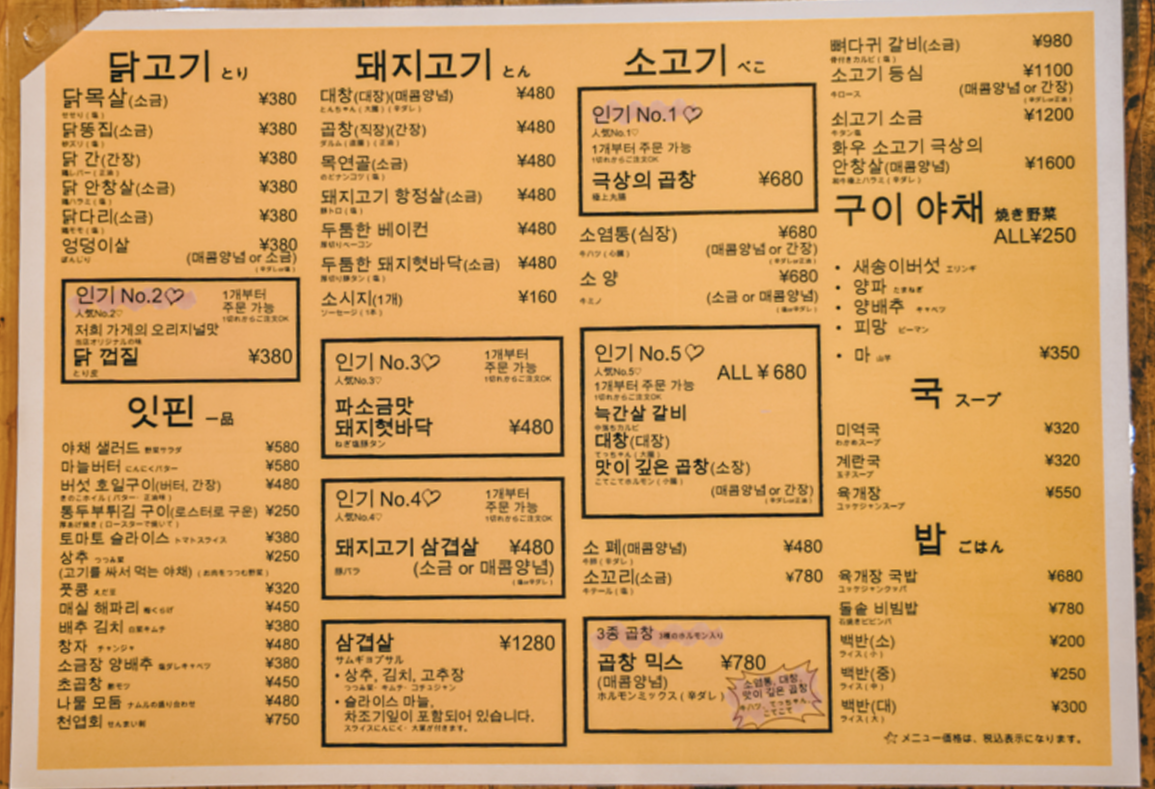 닭고기 とり
닭목살(소금) ¥380
せせり(塩)
닭똥집(소금) ¥380
砂ズリ(塩)
닭 간(간장) ¥380
鶏レバー(正油)
닭 안창살(소금) ¥380
鶏ハラミ(塩)
닭다리(소금) ¥380
鶏モモ(塩)
엉덩이살 ¥380
ぼんじり (매콤양념 or 소금)
(辛ダレor塩)
인기 No.2♡ 1개부터
人気No.2♡ 주문 가능
1切れからご注文OK
저희 가게의 오리지널맛
当店オリジナルの味
닭 껍질 ¥380
とり皮
잇핀 一品
야채 샐러드 野菜サラダ ¥580
마늘버터 にんにくバター ¥580
버섯 호일구이(버터, 간장) ¥480
きのこホイル(バター・正油味)
통두부튀김 구이(로스터로 구운) ¥250
厚あげ焼き(ロースターで焼いて)
토마토 슬라이스 トマトスライス ¥380
상추 つつみ菜 ¥250
(고기를 싸서 먹는 야채) (お肉をつつむ野菜)
풋콩 えだ豆 ¥320
매실 해파리 梅くらげ ¥450
배추 김치 白菜キムチ ¥380
창자 チャンジャ ¥480
소금장 양배추 塩ダレキャベツ ¥380
초곱창 酢モツ ¥450
나물 모둠 ナムルの盛り合わせ ¥480
천엽회 せんまい刺 ¥750
돼지고기 とん
대창(대장)(매콤양념) ¥480
とんちゃん(大腸)(辛ダレ)
곱창(직장)(간장) ¥480
ダルム(直腸)(正油)
목연골(소금) ¥480
のどナンコツ(塩)
돼지고기 항정살(소금) ¥480
豚トロ(塩)
두툼한 베이컨 ¥480
厚切りベーコン
두툼한 돼지혓바닥(소금) ¥480
厚切り豚タン(塩)
소시지(1개) ¥160
ソーセージ(1本)
인기 No.3♡ 1개부터
人気No.3♡ 주문 가능
1切れからご注文OK
파소금맛
돼지혓바닥 ¥480
ねぎ塩豚タン
인기 No.4♡ 1개부터
人気No.4♡ 주문 가능
1切れからご注文OK
돼지고기 삼겹살 ¥480
豚バラ (소금 or 매콤양념)
(塩or辛ダレ)
삼겹살 ¥1280
サムギョプサル
・상추, 김치, 고추장
つつみ菜・キムチ・コチュジャン
・슬라이스 마늘,
차조기잎이 포함되어 있습니다.
スライスにんにく・大葉が付きます。
소고기 べこ
인기 No.1 ♡
人気No.1♡
1개부터 주문 가능
1切れからご注文OK
극상의 곱창 ¥680
極上丸腸
소염통(심장) ¥680
牛ハツ(心臓) (매콤양념 or 간장)
(辛ダレor正油)
소 양 ¥680
牛ミノ (소금 or 매콤양념)
(塩or辛ダレ)
인기 No.5♡
人気No.5♡ ALL ¥680
1개부터 주문 가능
1切れからご注文OK
늑간살 갈비
中落ちカルビ
대창(대장)
てっちゃん(大腸)
맛이 깊은 곱창(소장)
こてこてホルモン(小腸)
(매콤양념 or 간장)
(辛ダレor正油)
소 폐(매콤양념) ¥480
牛肺(辛ダレ)
소꼬리(소금) ¥780
牛テール(塩)
3종 곱창 3種のホルモン入り
곱창 믹스 ¥780
(매콤양념)
ホルモンミックス(辛ダレ)
소염통, 대창,
맛이 깊은 곱창
牛ハツ、てっちゃん、
こてこて
뼈다귀 갈비(소금) ¥980
骨付きカルビ(塩)
소고기 등심 ¥1100
牛ロース (매콤양념 or 간장)
(辛ダレor正油)
쇠고기 소금 ¥1200
牛タン塩
화우 소고기 극상의
안창살(매콤양념) ¥1600
和牛極上ハラミ(辛ダレ)
구이 야채 焼き野菜
ALL¥250
・ 새송이버섯 エリンギ
・ 양파 たまねぎ
・ 양배추 キャベツ
・ 피망 ピーマン
・ 마 山芋 ¥350
국 スープ
미역국 ¥320
わかめスープ
계란국 ¥320
玉子スープ
육개장 ¥550
ユッケジャンスープ
밥 ごはん
육개장 국밥 ¥680
ユッケジャンクッパ
돌솥 비빔밥 ¥780
石焼きビビンバ
백반(소) ¥200
ライス(小)
백반(중) ¥250
ライス(中)
백반(대) ¥300
ライス(大)
☆メニュー価格は、税込表示になります。